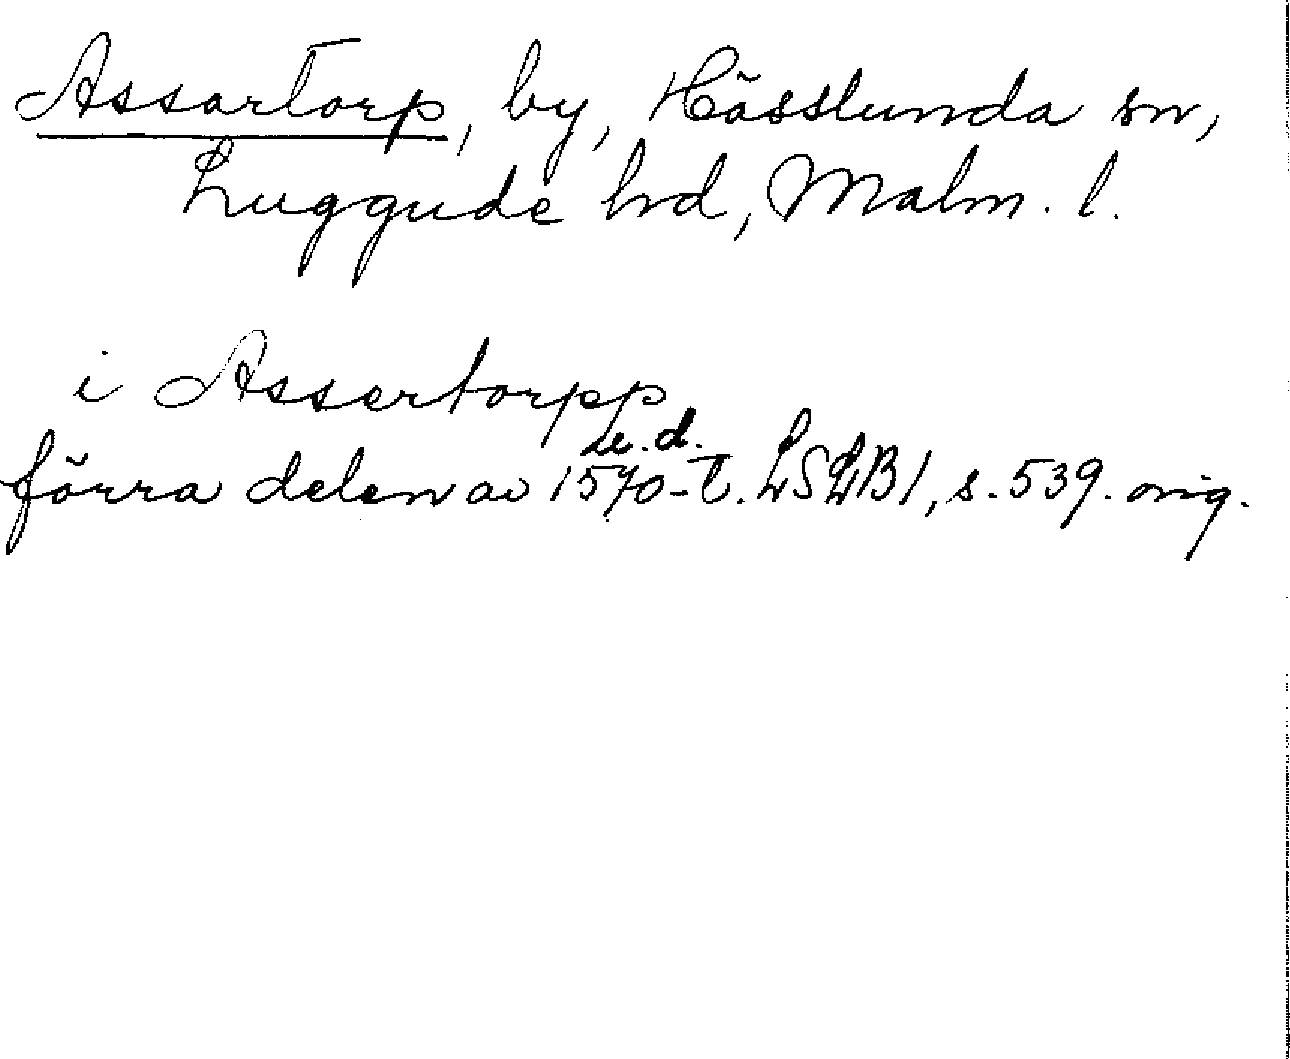 Assartorp, by, Hässlunda sn,
Luggude hd, Malm. l.
i Assertorpp
u. d.
förra delen av 1570-t. LSLB1, s. 539. orig.